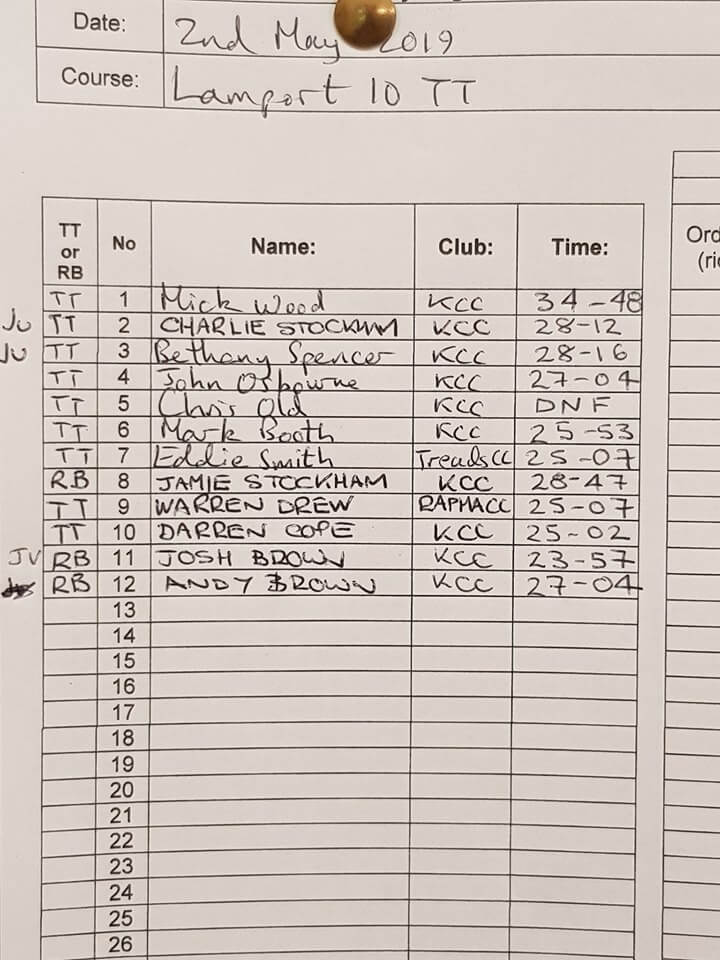 Date: 2nd May 2019
Course: Lamport 10 TT
TT or RB No Name: Club: Time: Ord
(ri
TT 1 Mick Wood KCC 34-48
Ju TT 2 CHARLIE STOCKHAM KCC 28-12
JU TT 3 Bethany Spencer KCC 28-16
TT 4 John Osbourne KCC 27-04
TT 5 Chris Old KCC DNF
TT 6 Mark Booth KCC 25-53
TT 7 Eddie Smith TreadsCC 25-07
RB 8 JAMIE STOCKHAM KCC 28-47
TT 9 WARREN DREW RAPHACC 25-07
TT 10 DARREN COPE KCC 25-02
JV RB 11 JOSH BROWN KCC 23-57
RB 12 ANDY BROWN KCC 27-04
13
14
15
16
17
18
19
20
21
22
23
24
25
26